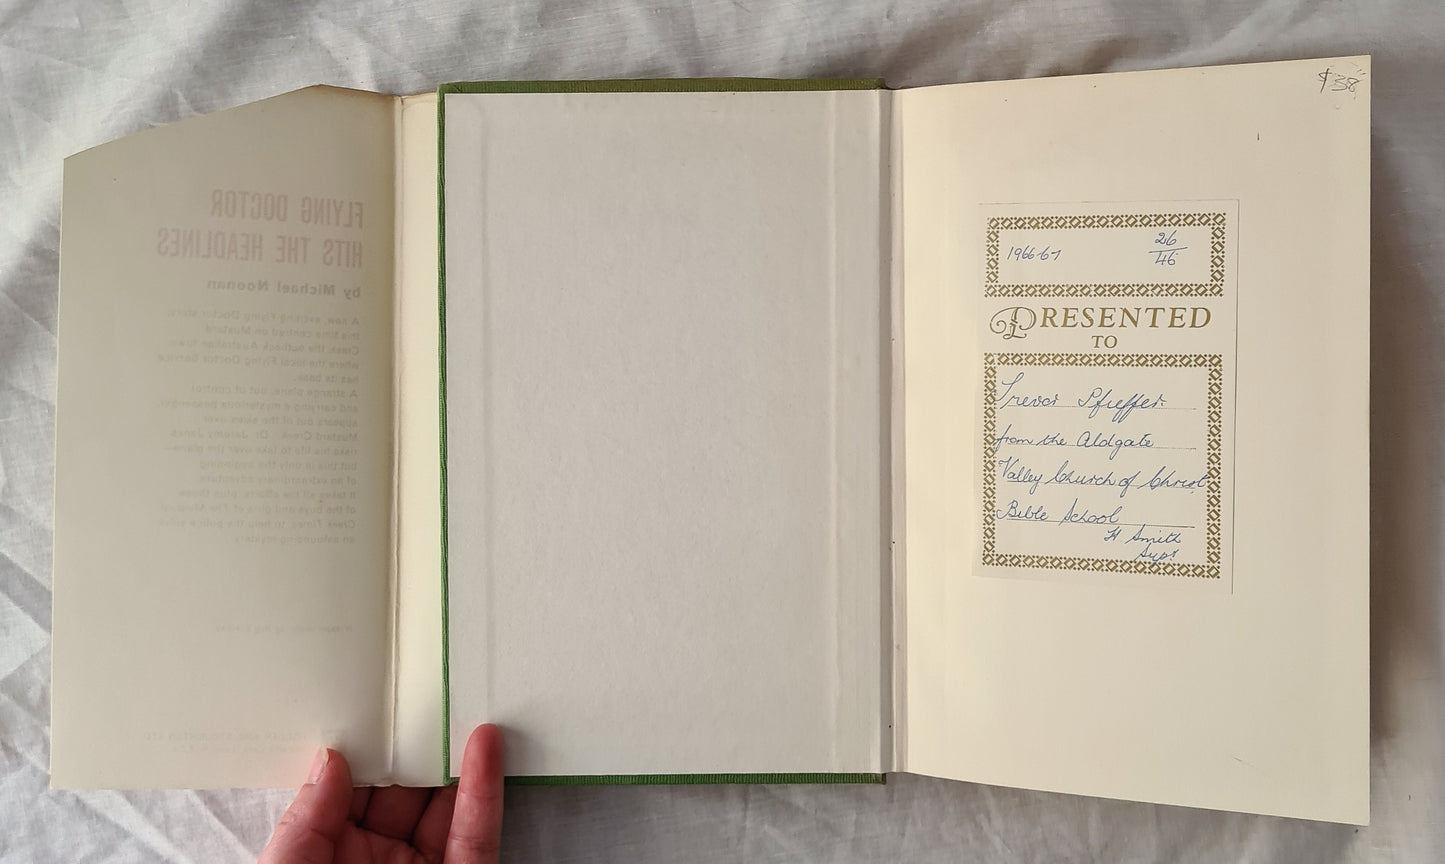 FLYING DOCTOR
HITS THE HEADLINES
by Michael Noonan
A new, exciting Flying Doctor story,
this time centred on Mustard
Creek, the outback Australian town
where the local Flying Doctor Service
has its base.
A strange plane, out of control
and carrying a mysterious passenger,
appears out of the skies over
Mustard Creek. Dr. Jeremy
risks his life to take over the plane—
but this is only the beginning
of an extraordinary adventure.
It takes all his efforts, plus those
of the boys and girls of The Mustard
Creek Times, to help the police solve
an astounding mystery.
HODDER AND STOUGHTON LTD
$38
1966-67
26
46
PRESENTED
TO
Trevor Pfieffer.
from the Aldgate
Valley Church of Christ
Bible School
H Smith
Supt